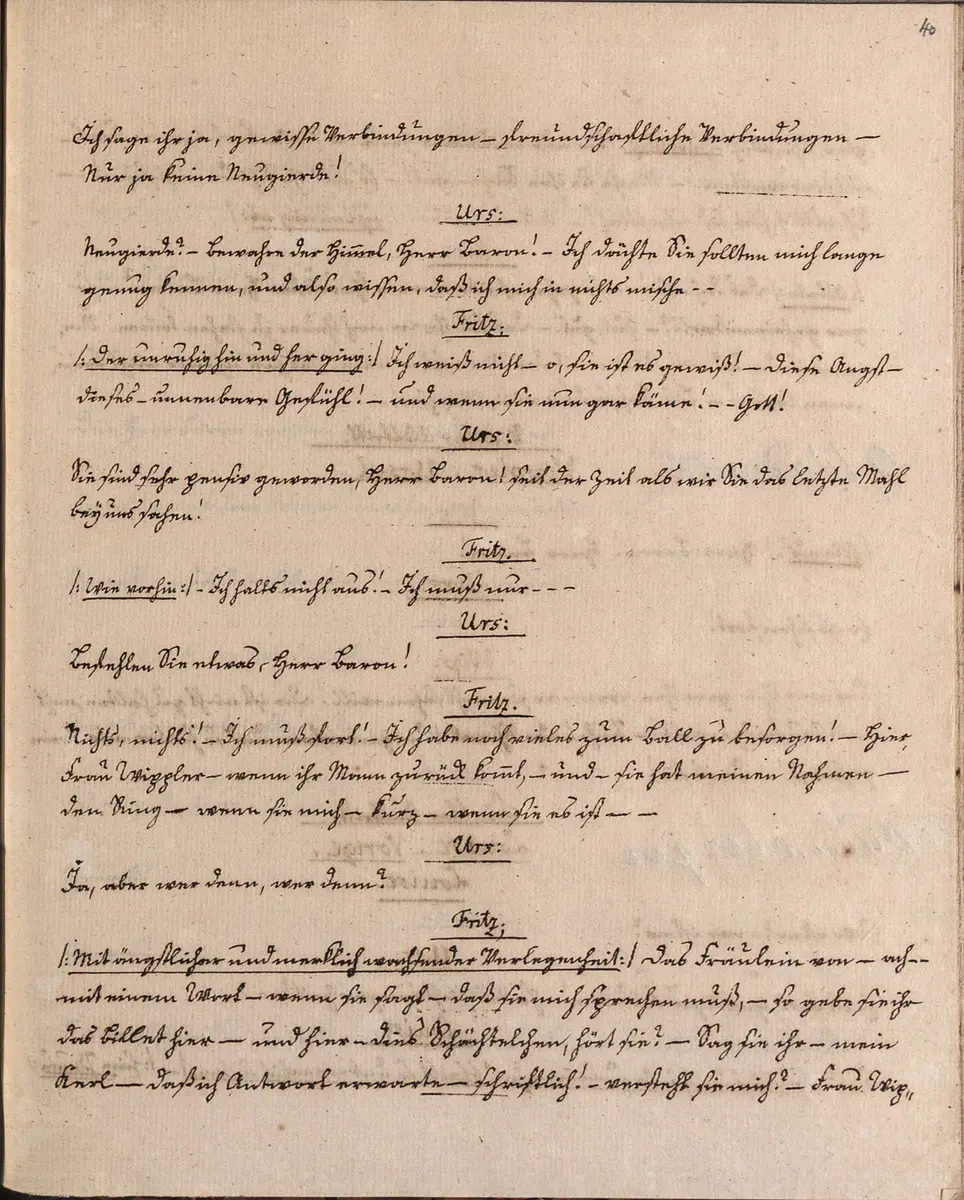 40
Ich sage ihr ja, gewisse Verbindungen – freundschaftliche Verbindungen –
Nur ja keine Neugierde!
Urs:
Neugierde? – bewahre der Him̅el, Herr Baron! – Ich dächte Sie sollten mich lange
genug kennen, und also wissen, daß ich mich in nichts mische - -
Fritz:
/: Der unruhig hin und her ging :/ Ich weiß nicht – o, sie ist es gewiß! – diese Angst –
dieses – unnenbare Gefühl! – und wenn sie nun gar käme! - - Gott!
Urs:
Sie sind sehr pensiv geworden, Herr Baron! seit der Zeit als wir Sie das letzte Mahl
bey uns sahen!
Fritz.
/: Wie vorhin :/ – Ich halts nicht aus! – Ich muß nur - - -
Urs:
Befehlen Sie etwas, Herr Baron!
Fritz.
Nichts, nichts! – Ich muß fort! – Ich habe noch vieles zum Ball zu besorgen! – Hier,
Frau Wippler – wenn ihr Mann zurück kom̅t, – und – sie hat meinen Nahmen –
den Ring – wenn sie mich – kurz – wenn sie es ist – –
Urs:
Ja, aber wer denn, wer denn?
Fritz:
/: Mit ängstlicher und merklich wachsender Verlegenheit :/ Das Fräulein von – ach - -
mit einem Wort – wenn sie sagt – daß sie mich sprechen muß, – so gebe sie ihr
das Billet hier – und hier – dies Schächtelchen, hört sie? – Sag sie ihr – mein
Kerl – daß ich Antwort erwarte – schriftlich! – versteht sie mich? – Frau Wip„